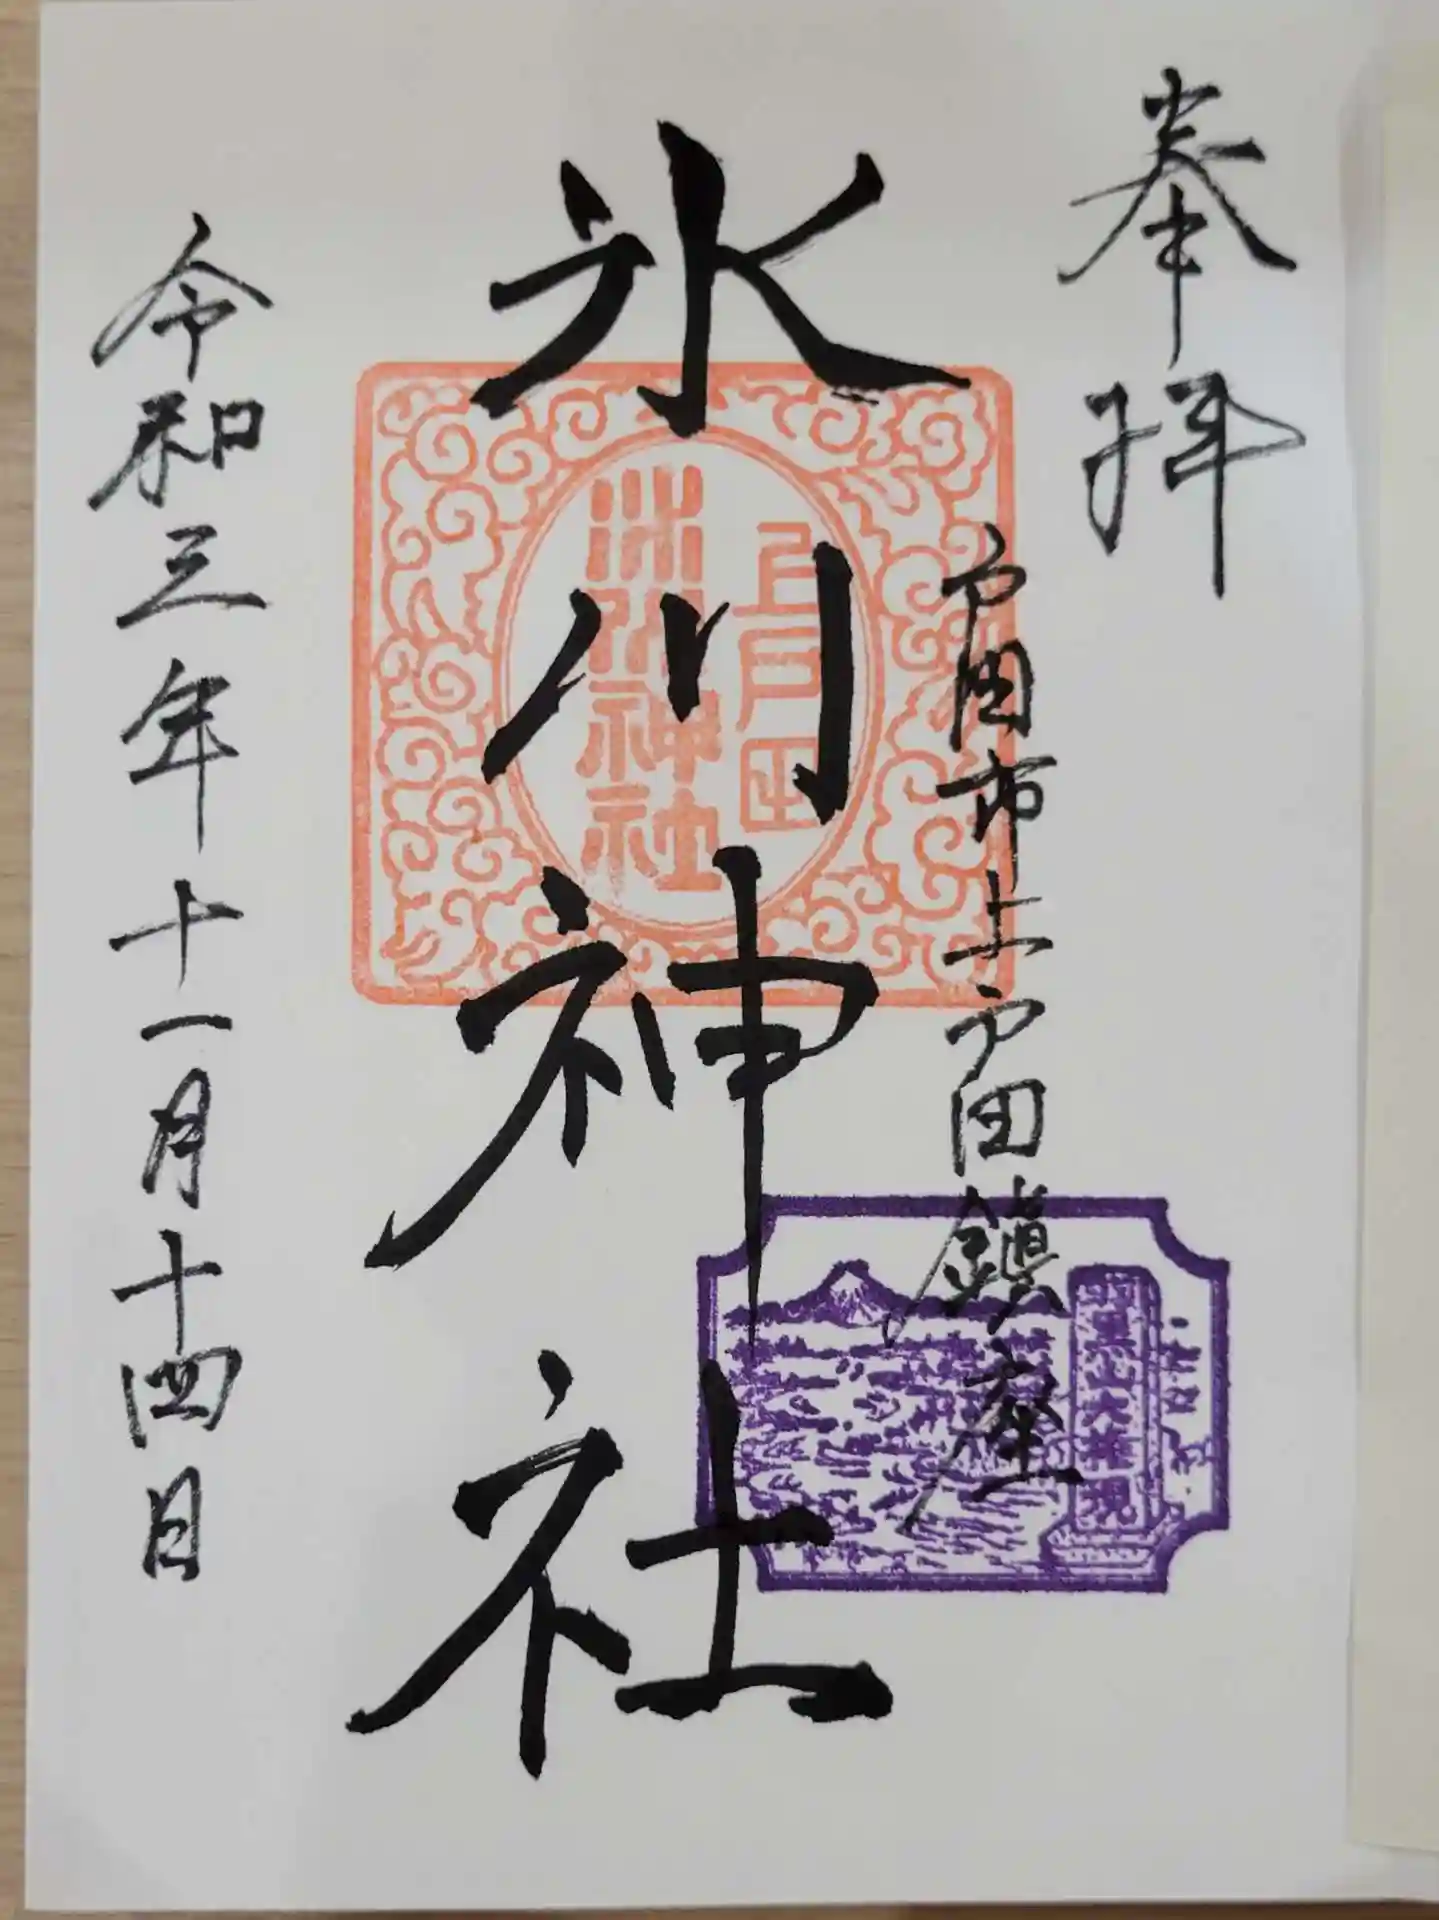 奉拝
戸田市上戸田鎮座
氷川神社
上戸田
氷川神社
羽黒山大権現
令和三年十一月十四日